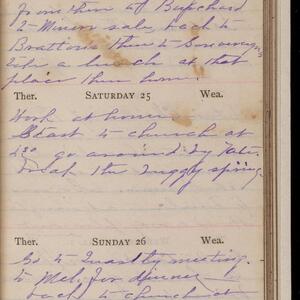 from then to
to Minor sale, back to
Brattons then to
take a lunch at that
place then home.
Ther. SATURDAY 25 Wea.
Work at home
Start to church at
4 30 go around by
the buggy spring.
Ther. SUNDAY 26 Wea.
Go to Quartly meeting.
to Mel. for dinner
back to church at